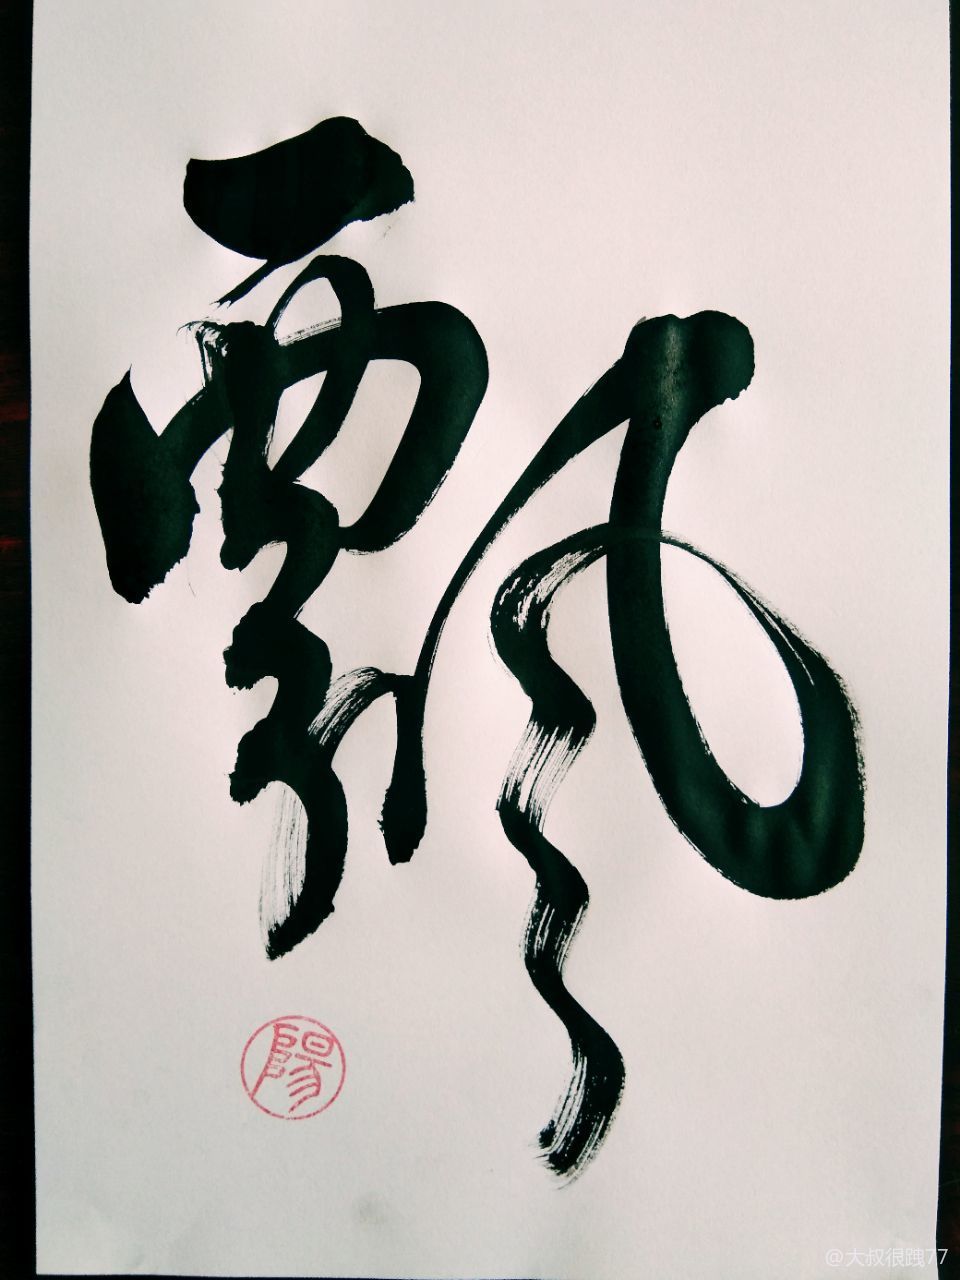 飘
陽
@大叔很跩77